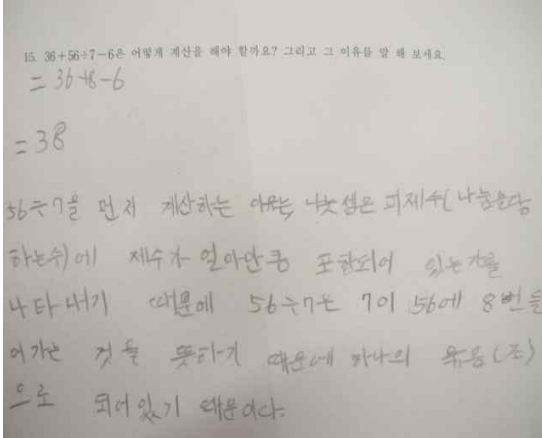 15. 36+56÷7-6은 어떻게 계산을 해야 할까요? 그리고 그 이유를 말 해 보세요.
= 36+8-6
= 38
56÷7을 먼저 계산하는 이유는 나눗셈은 피제수(나눔을당
하는수)에 제수가 얼마만큼 포함되어 있는가를
나타내기 때문에 56÷7은 7이 56에 8번들
어가는 것을 뜻하기 때문에 하나의 묶음(조)
으로 되어있기 때문이다.